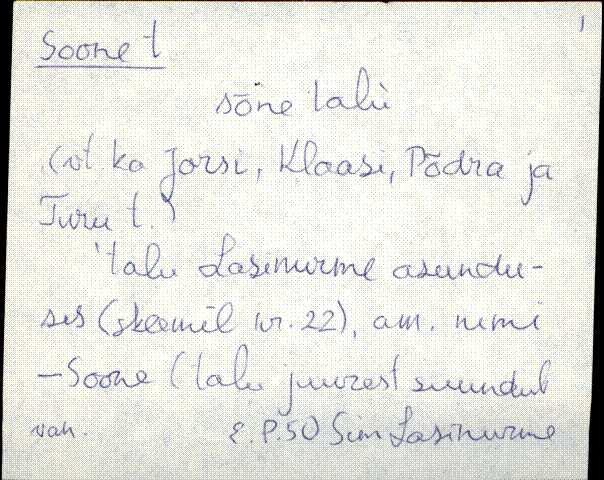 1
Soone t
sōne talu
(vt ka Jorsi, Klaasi, Põdra ja
Turu t.)
'talu Lasinurme asundu-
ses (skeemil nr. 22), am. nimi
—Soone (talu juurest suundub
vah. E.P.50 Sim Lasinurme